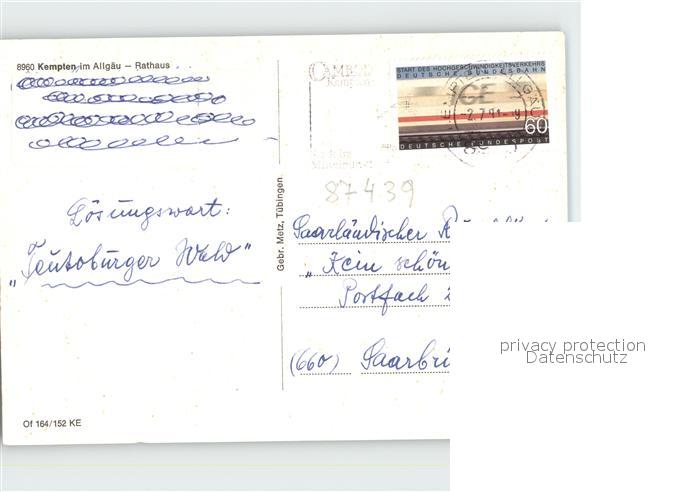 8960 Kempten im Allgäu – Rathaus
START DES HOCHGESCHWINDIGKEITSVERKEHRS
DEUTSCHE BUNDESBAHN
-2.7.91-9
60
DEUTSCHE BUNDESPOST
87439
Lösungswort:
„Teutoburger Wald"
Gebr. Metz, Tübingen
Saarländischer
„Kein schön
Postfach
(660) Saarbrü
privacy protection
Datenschutz
Of 164/152 KE